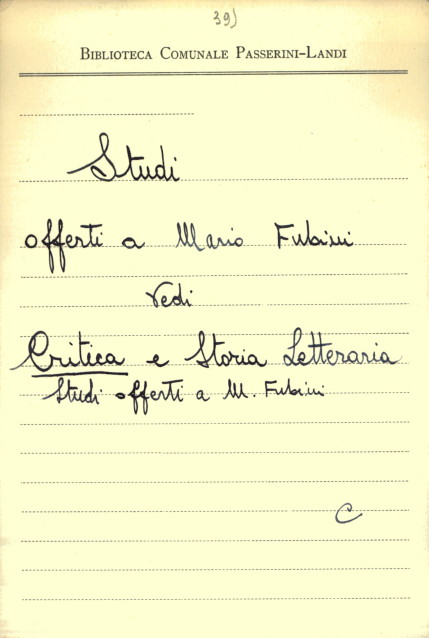 39)
BIBLIOTECA COMUNALE PASSERINI-LANDI
Studi
offerti a Mario Fubini
Vedi
Critica e Storia Letteraria
Studi offerti a M. Fubini
C